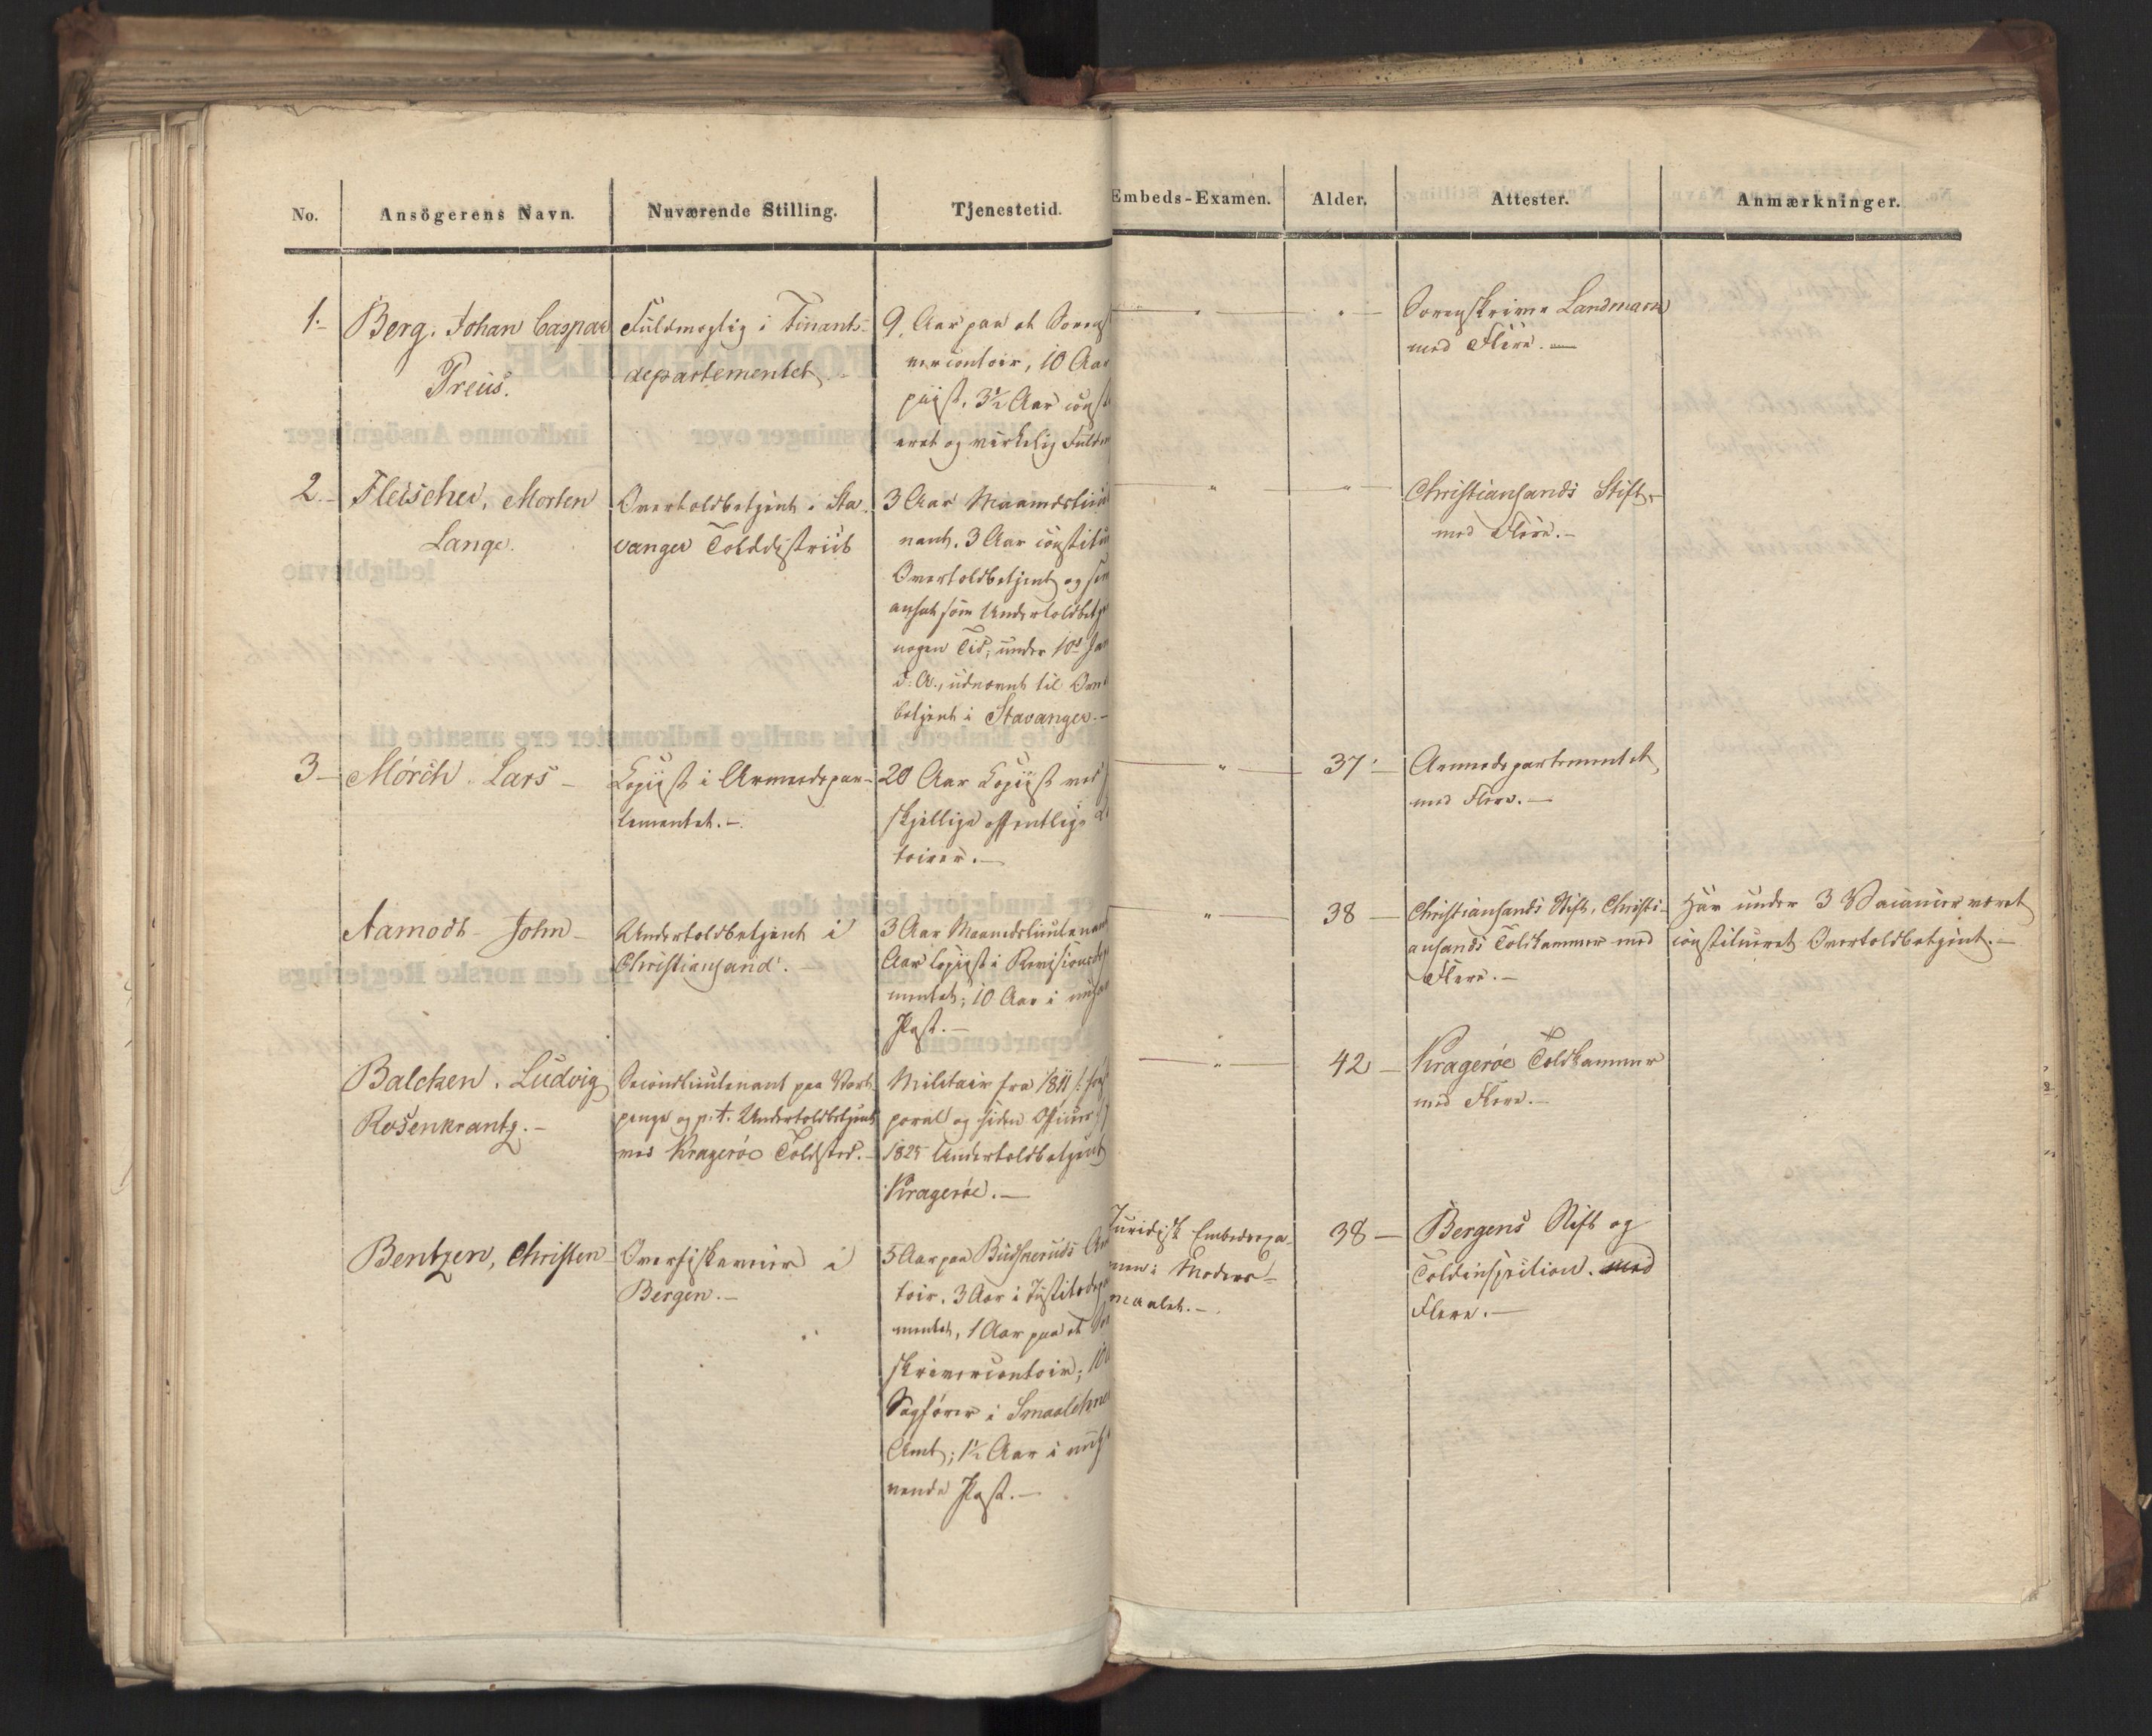 No. Ansögerens Navn. Nuværende Stilling. Tjenestetid. Embeds-Examen. Alder. Attester. Anmærkninger.
1.- Berg, Johan Caspar
Preus.
Fuldmægtig i Finants-
departementet.-
9. Aar paa et Sorensk
vercontoir, 10 Aar
piist, 3½ Aar const
eret og virkelig Fuldm
" "
Sorenskriver Landmark
med Flere.-
2.- Fleischer, Morten
Lange.
Overtoldbetjent i Sta-
vanger Tolddistrict
3 Aar Maanedslieut
nant, 3 Aar constitu
Overtoldbetjent og
ansat som Undertoldbetj
nogen Tid; under 10de Jan
d: A., udnævnt til Over
betjent i Stavanger.-
" "
Christiansands Stift,
med Flere.-
3- Mörch, Lars-
Copiist i Armeedepar-
tementet.-
20 Aar Copiist ved
skjellige offentlige
toirer.-
" 37.-
Armeedepartementet,
med Flere.-
Aamodt- John-
Undertoldbetjent i
Christiansand.-
3 Aar Maanedslieutenant
Aar Copiist i Revisionsdep
mentet; 10 Aar i nuhav
Post.-
" 38-
Christiansands Stift, Christi-
ansands Toldkammer med
Flere.-
Har under 3 Vacancer været
constitueret Overtoldbetjent.-
Balchen, Ludvig
Rosenkrantz.-
Secondlieutenant paa Vart-
penge og p.t. Undertoldbetjent
ved Kragerøe Toldsted.-
Militair fra 1811
poral og siden Officier
1825 Undertoldbetjent
Kragerøe.-
" 42-
Kragerøe Toldkammer
med Flere.-
Bentzen, Christen-
Overfiskerier i
Bergen.-
5 Aar paa Budskeruds
toir, 3 Aar i Justitsdep
mentet, 1 Aar paa et
skrivercontoir;
Sagfører i Smaalehne
Amt; 1½ Aar i nuh
vende Post.-
Juridisk Embedsexa-
men i Moders-
maalet.-
38-
Bergens Stift og
Toldinspection. med
Flere.-